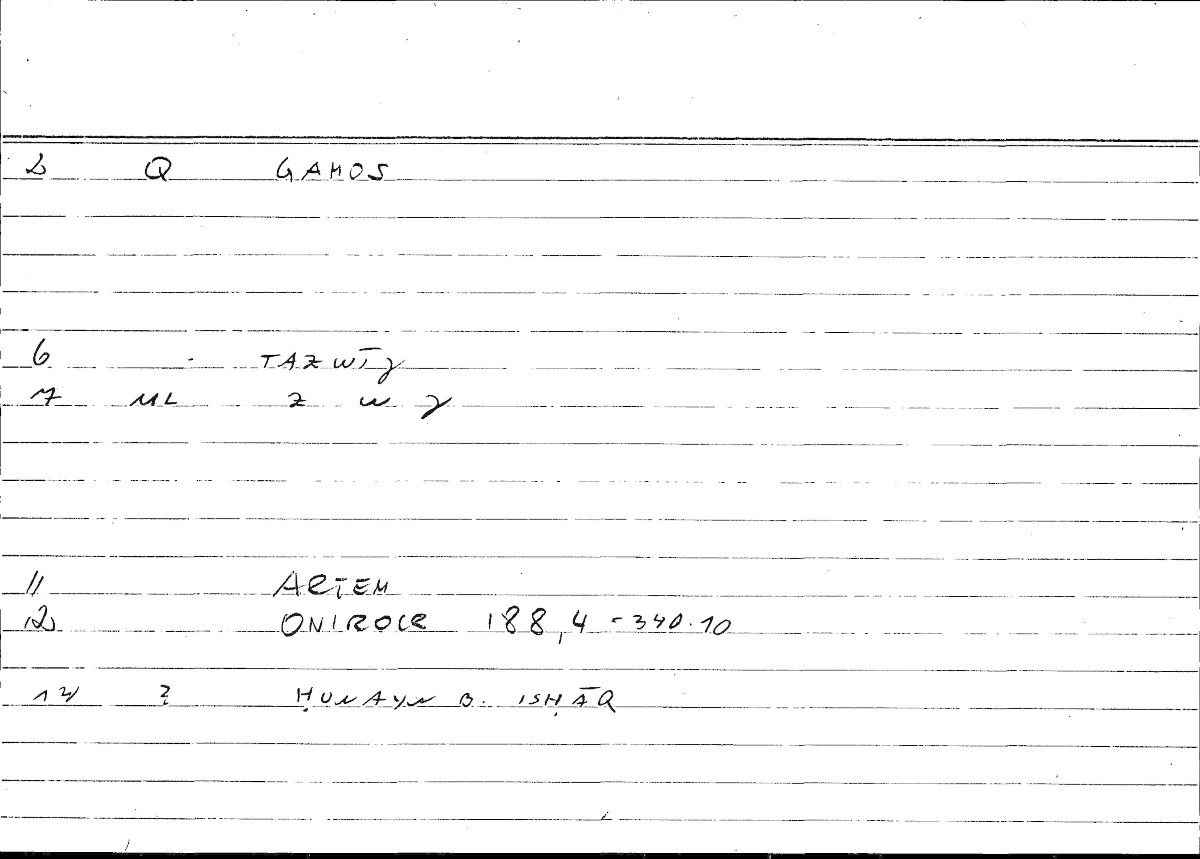 2 Q GAMOS
6 TAZWĪǧ
7 ML z w ǧ
11 ARTEM
12 ONIROCR 188,4 - 340.10
14 ? ḤUNAYN B. ISḤĀQ